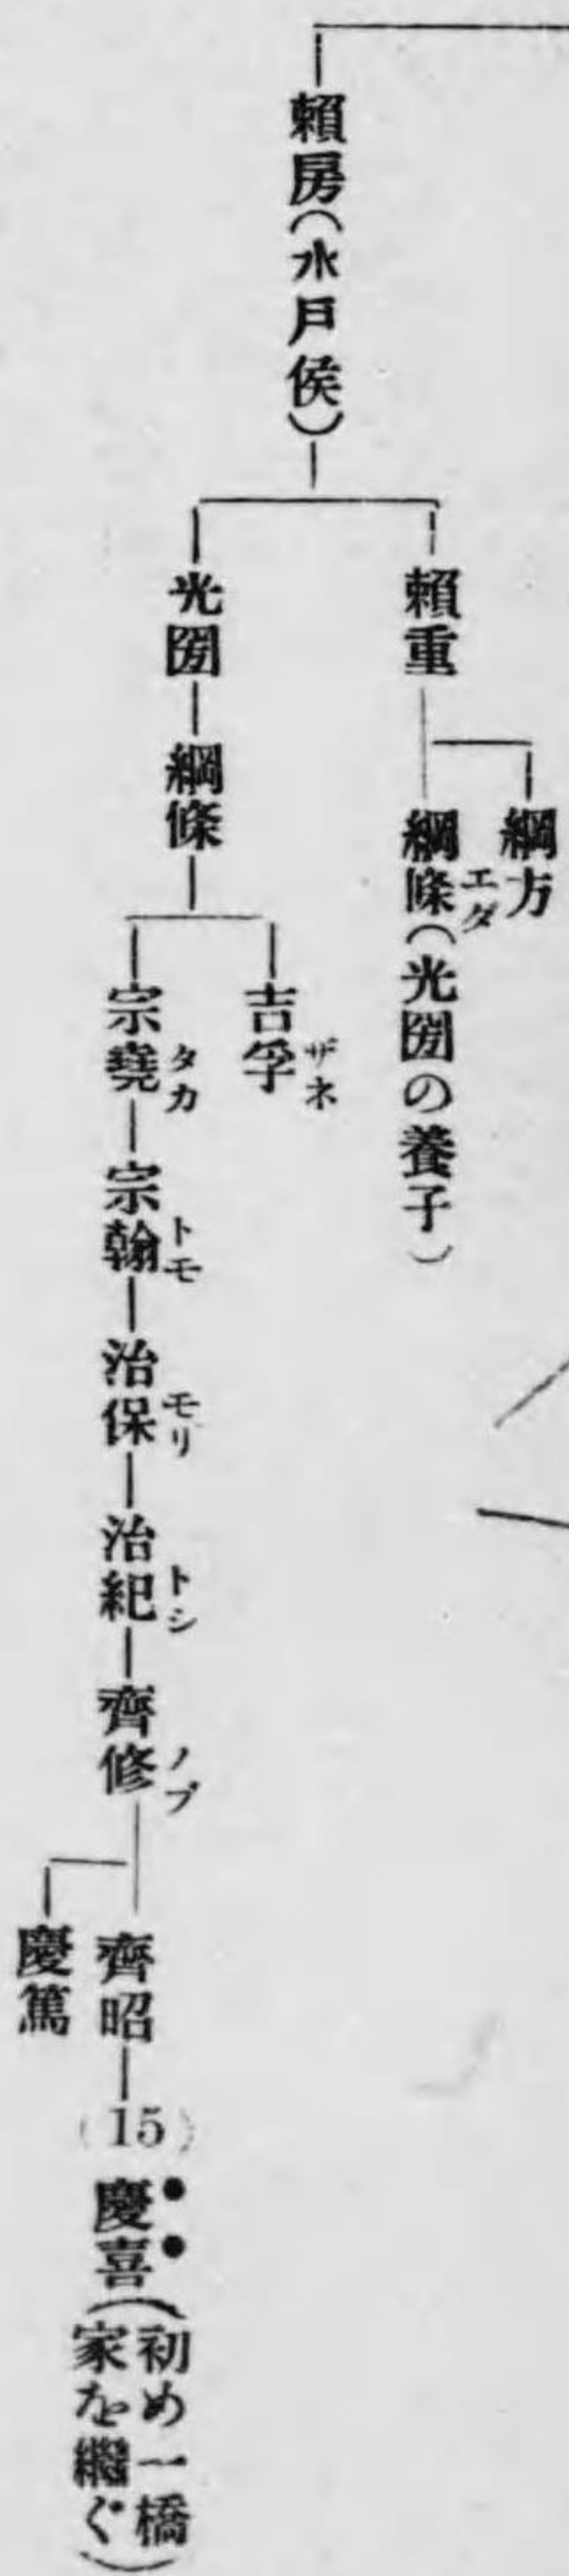 頼房（水戸侯）
頼重
綱方
綱條（光圀の養子）
エダ
光圀
綱條
吉孚
ザネ
宗堯
タカ
宗翰
トモ
治保
モリ
治紀
トシ
齊修
ノブ
齊昭
慶篤
（15）
慶喜（初め一橋
家を繼ぐ）